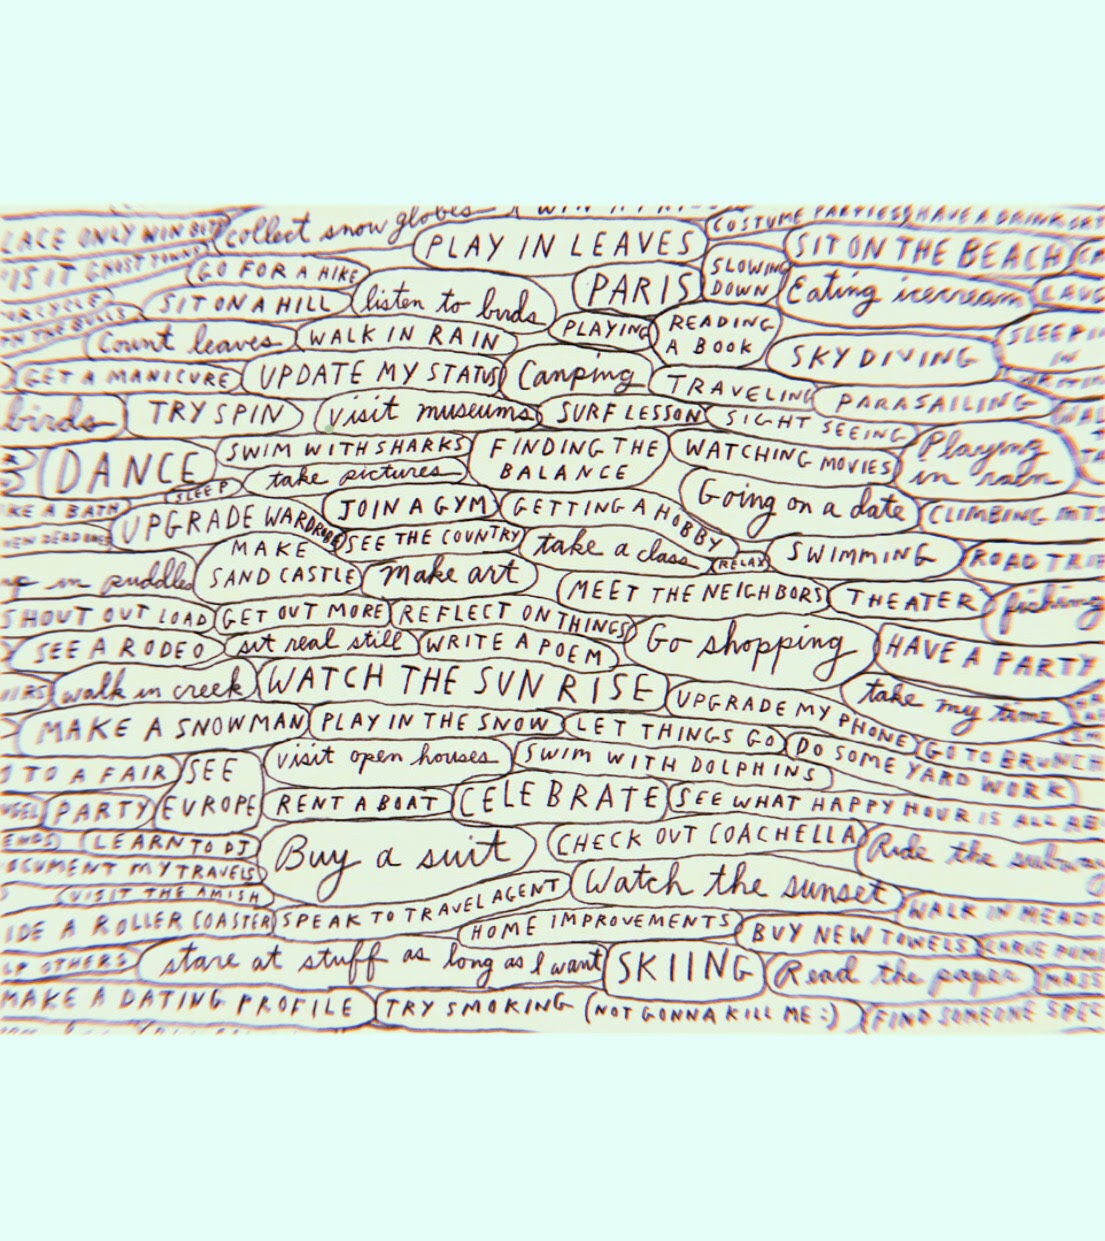 collect snow globes
COSTUME PARTIES
HAVE A DRINK
PLACE ONLY WIN
PLAY IN LEAVES
SIT ON THE BEACH
VISIT GHOST TOWN
GO FOR A HIKE
PARIS
SLOWING DOWN
Eating icecream
SIT ON A HILL
listen to birds
Count leaves
WALK IN RAIN
PLAYING
READING A BOOK
SKY DIVING
SLEEP IN
GET A MANICURE
UPDATE MY STATUS
Camping
TRAVELING
PARASAILING
birds
TRY SPIN
visit museums
SURF LESSON
SIGHT SEEING
Playing in rain
DANCE
SWIM WITH SHARKS
FINDING THE BALANCE
WATCHING MOVIES
SLEEP
take pictures
Going on a date
CLIMBING MTS
KE A BATH
UPGRADE WARDROBE
JOIN A GYM
GETTING A HOBBY
SEE THE COUNTRY
take a class
RELAX
SWIMMING
ROAD TRIP
in puddles
MAKE SAND CASTLE
Make art
MEET THE NEIGHBORS
THEATER
fishing
SHOUT OUT LOAD
GET OUT MORE
REFLECT ON THINGS
Go shopping
HAVE A PARTY
SEE A RODEO
sit real still
WRITE A POEM
walk in creek
WATCH THE SUN RISE
UPGRADE MY PHONE
take my time
MAKE A SNOWMAN
PLAY IN THE SNOW
LET THINGS GO
DO SOME YARD WORK
GO TO BRUNCH
O TO A FAIR
SEE EUROPE
visit open houses
SWIM WITH DOLPHINS
PARTY
RENT A BOAT
CELEBRATE
SEE WHAT HAPPY HOUR IS ALL AB
LEARN TO DJ
Buy a suit
CHECK OUT COACHELLA
Ride the subway
OCUMENT MY TRAVELS
VISIT THE AMISH
Watch the sunset
WALK IN MEADO
IDE A ROLLER COASTER
SPEAK TO TRAVEL AGENT
HOME IMPROVEMENTS
BUY NEW TOWELS
CARVE PUM
LP OTHERS
stare at stuff as long as I want
SKIING
Read the paper
MAKE A DATING PROFILE
TRY SMOKING (NOT GONNA KILL ME :)
FIND SOMEONE SPEC